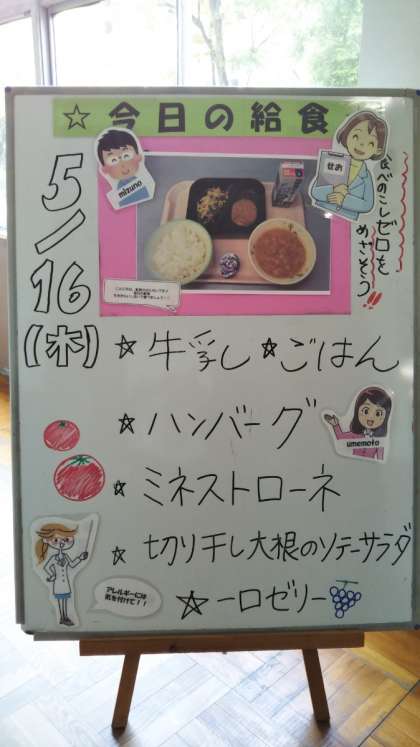 ☆今日の給食
5/16(木)
mizuno
せお
食べのこしゼロを
めざそう!!
☆牛乳 ☆ごはん
☆ハンバーグ
umemoto
☆ミネストローネ
☆切り干し大根のソテーサラダ
☆一口ゼリー
アレルギーには
気を付けて!!